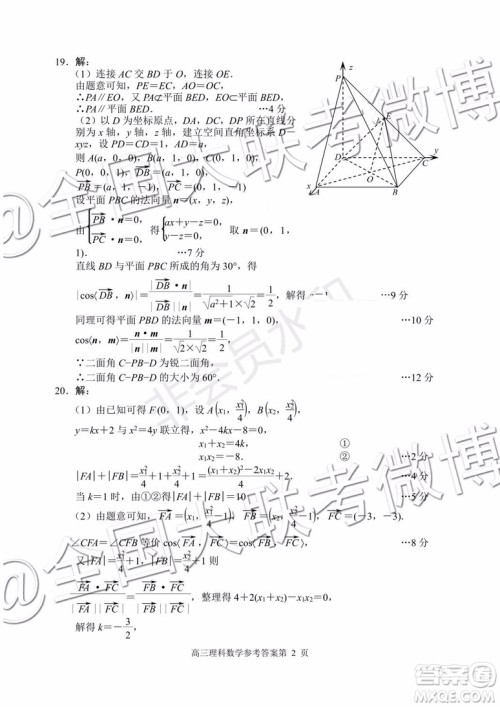 19. 解：
(1) 连接 AC 交 BD 于 O，连接 OE.
由题意可知，PE=EC，AO=OC，
∴PA∥EO，又 PA⊄平面 BED，EO⊂平面 BED，
∴PA∥平面 BED. …4 分
(2) 以 D 为坐标原点，DA，DC，DP 所在直线分
别为 x 轴，y 轴，z 轴，建立空间直角坐标系 D—
xyz，设 PD=CD=1，AD=a，
则 A(a，0，0)，B(a，1，0)，C(0，1，0)，
P(0，0，1)，DB=(a，1，0)，
PB=(a，1，-1)，PC=(0，1，-1)
设平面 PBC 的法向量 n=(x，y，z)，
由{PB·n PC·n 得{ax+y-z=0 y-z=0，取 n=(0，1，
1). …7 分
直线 BD 与平面 PBC 所成的角为 30°，得
|cos⟨DB，n⟩|=|DB·n|/|DB||n|=1/(√(a²+1)×√2)=1/2，解得 …9 分
同理可得平面 PBD 的法向量 m=(-1，1，0)， …10 分
cos⟨n，m⟩=n·m/|n||m|=1/(√2×√2)=1/2，
∵二面角 C-PB-D 为锐二面角，
∴二面角 C-PB-D 的大小为 60°. …12 分
20. 解：
(1) 由已知可得 F(0，1)，设 A(x₁，x₁²/4)，B(x₂，x₂²/4)，
y=kx+2 与 x²=4y 联立得，x²-4kx-8=0，
x₁+x₂=4k， ①
② …2 分
|FA|+|FB|=x₁²/4+1+x₂²/4+1=((x₁+x₂)²-2x₁x₂)/4+2 …4 分
当 k=1 时，由①②得|FA|+|FB|=10 …5 分
(2) 由题意可知，FA=(x₁，x₁²/4-1)，FB=(x₂，x₂²/4-1)，FC=(-3，-3).
∠CFA=∠CFB 等价 cos⟨FA，FC⟩=cos⟨FB，FC⟩， …8 分
又|FA|=x₁²/4+1，|FB|=x₂²/4+1 则
FA·FC/|FA||FC|=FB·FC/|FB||FC|，整理得 4+2(x₁+x₂)-x₁x₂=0，
解得 k=-3/2，
高三理科数学参考答案第 2 页
z
P
E
D
C
y
O
x
A
B
@全国大联考微博
非会员水印